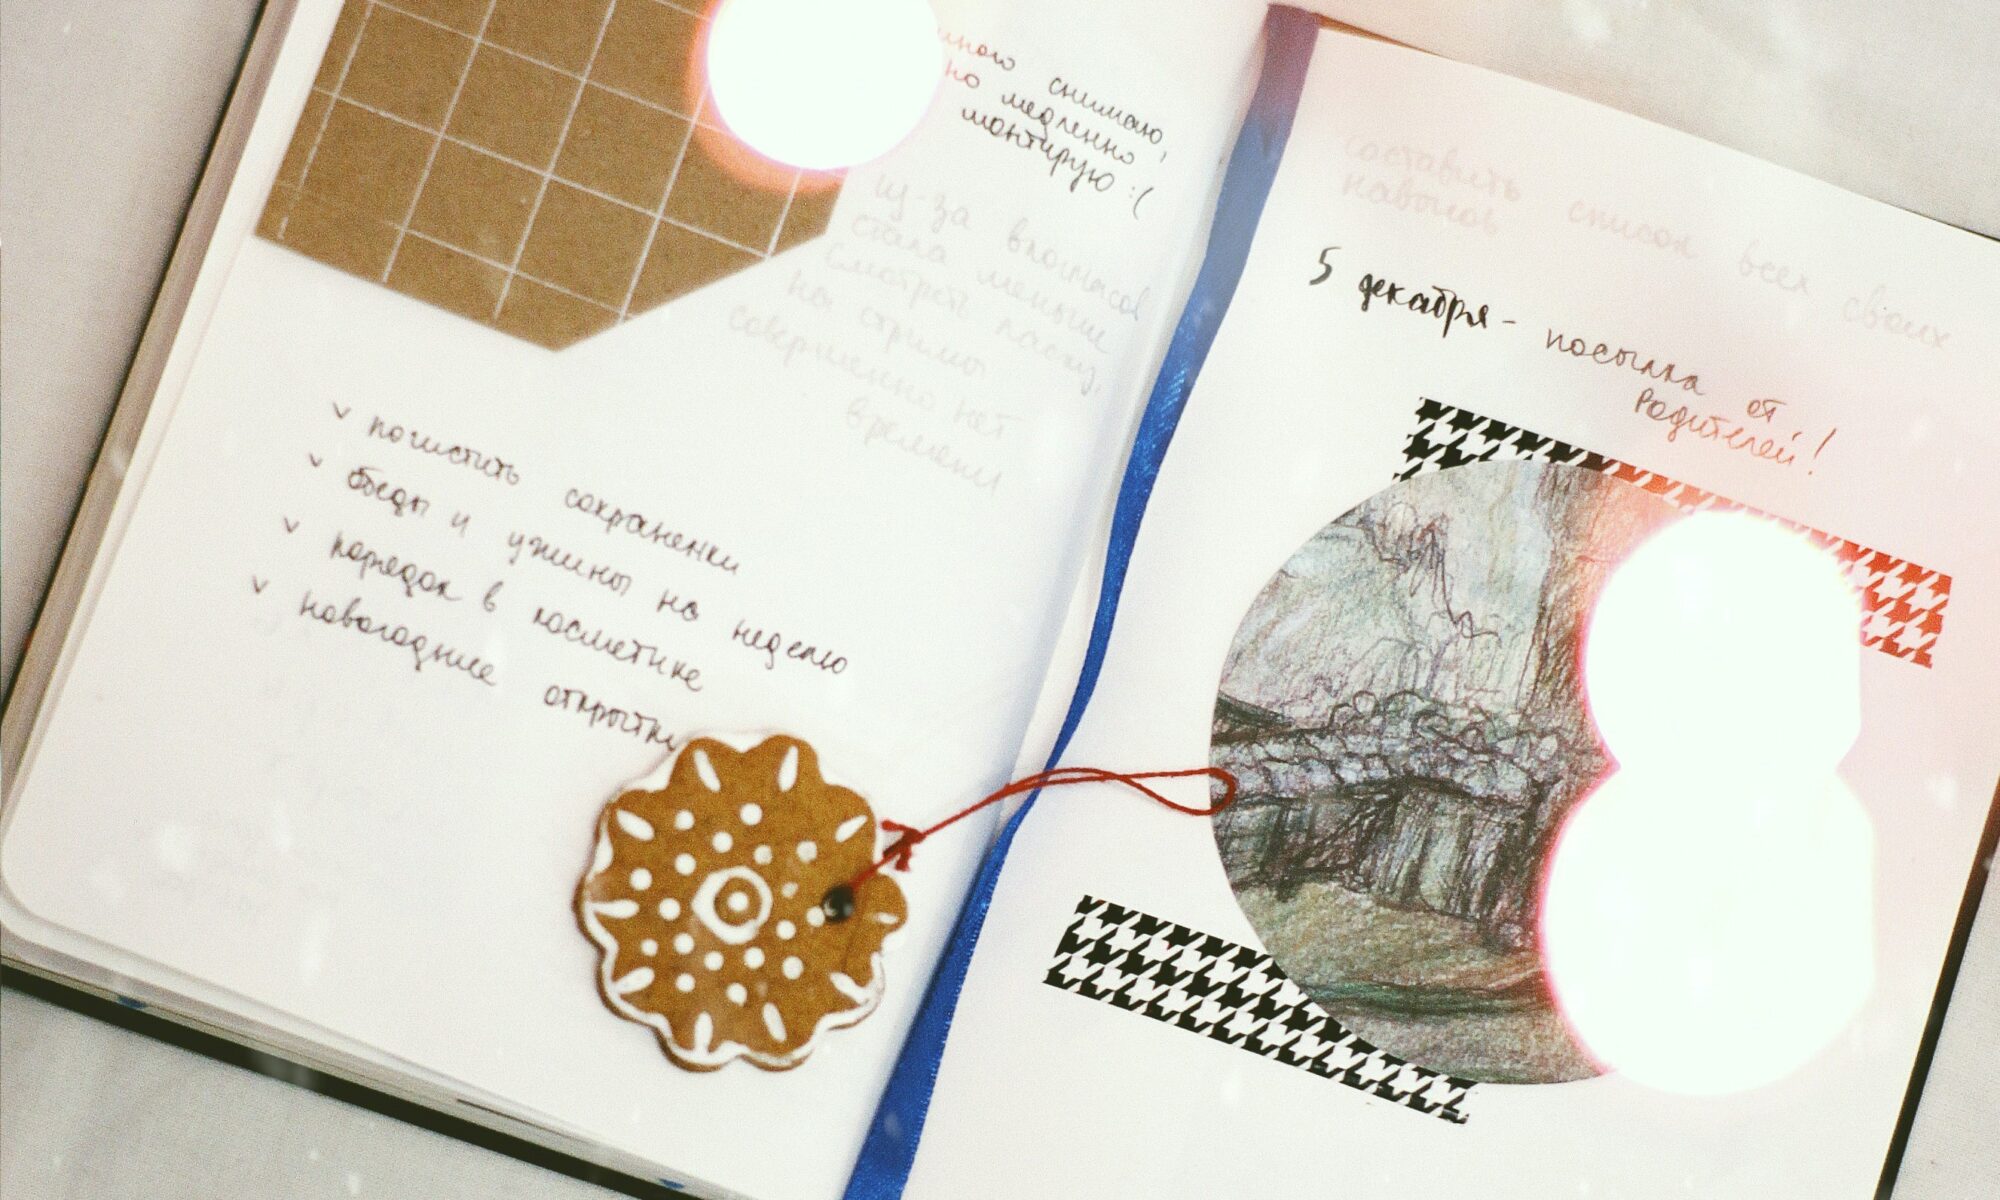 много снимаю,
но медленно
монтирую :(
из-за влогмасов
стала меньше
смотреть ласку,
на стримы
совершенно нет
времени
v почистить сохраненки
v обеды и ужины на неделю
v порядок в косметике
v новогодние открытки
составить список всех своих
навыков
5 декабря - посылка от
родителей!